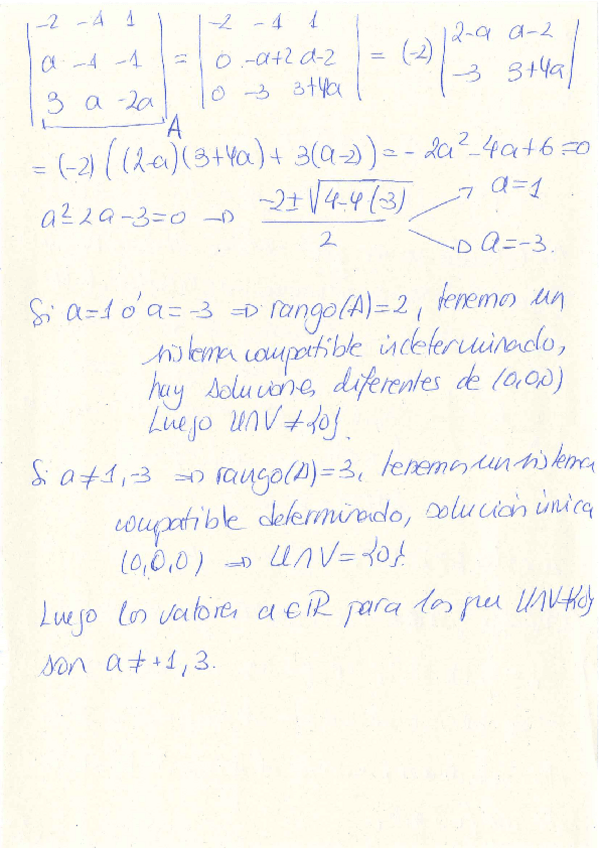 | -2 -1 1 | = | -2 -1 1 | = (-2) | 2-a a-2 |
| a -1 -1 | | 0 -a+2 a-2 | | -3 3+4a |
| 3 a -2a | | 0 -3 3+4a |
A
= (-2) ((2-a)(3+4a) + 3(a-2)) = - 2a² - 4a + 6 = 0
a² - 2a - 3 = 0 → (-2 ± √(4-4(-3))) / 2 → a = 1
→ a = -3.
Si a=1 ó a=-3 ⇒ rango(A)=2, tenemos un
sistema compatible indeterminado,
hay soluciones diferentes de (0,0,0)
Luego U∩V ≠ {0}.
Si a≠1,-3 ⇒ rango(A)=3, tenemos un sistema
compatible determinado, solución única
(0,0,0) ⇒ U∩V = {0}.
Luego los valores a∈ℝ para los que U∩V≠{0}
son a ≠ +1, 3.